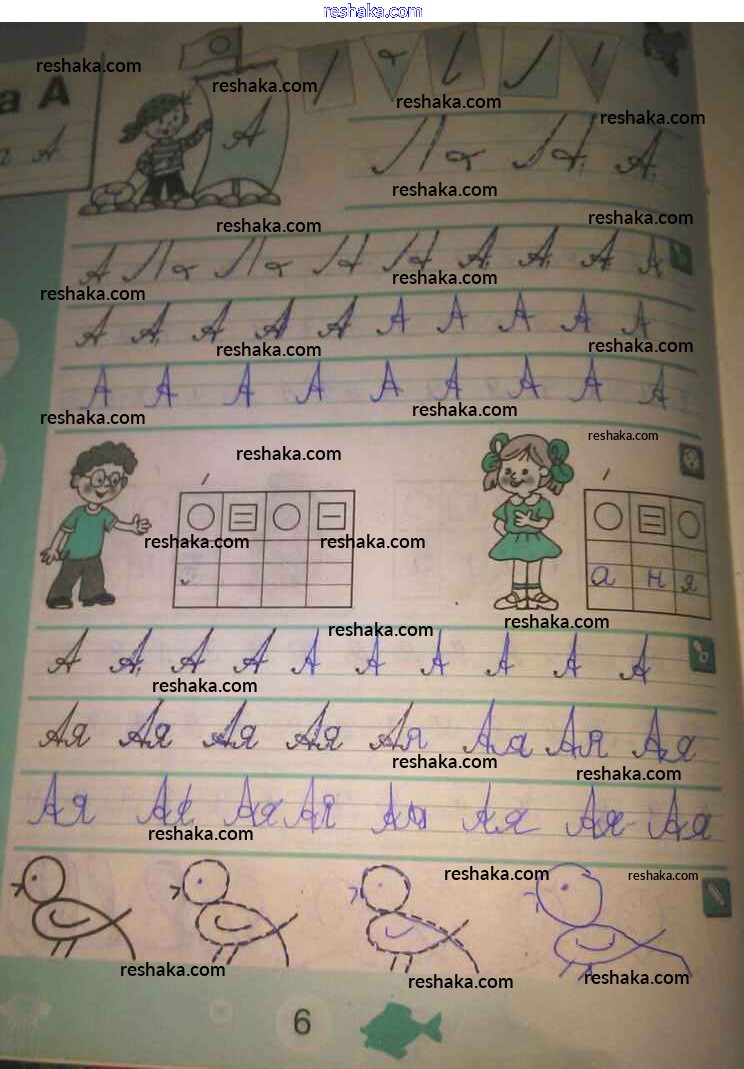 reshaka.com
а А
А
А
reshaka.com
reshaka.com
reshaka.com
reshaka.com
А
reshaka.com
reshaka.com
reshaka.com
А А А А А
reshaka.com
reshaka.com
А А А А А А А А А А
reshaka.com
reshaka.com
А А А А А А А А А
reshaka.com
reshaka.com
reshaka.com
reshaka.com
reshaka.com
reshaka.com
а н я
reshaka.com
reshaka.com
А А А А А А А А А А
reshaka.com
Ая Ая Ая Ая Ая Ая Ая Ая
reshaka.com
reshaka.com
Ая Ая Ая Ая Ая Ая Ая Ая
reshaka.com
reshaka.com
reshaka.com
reshaka.com
reshaka.com
reshaka.com
6